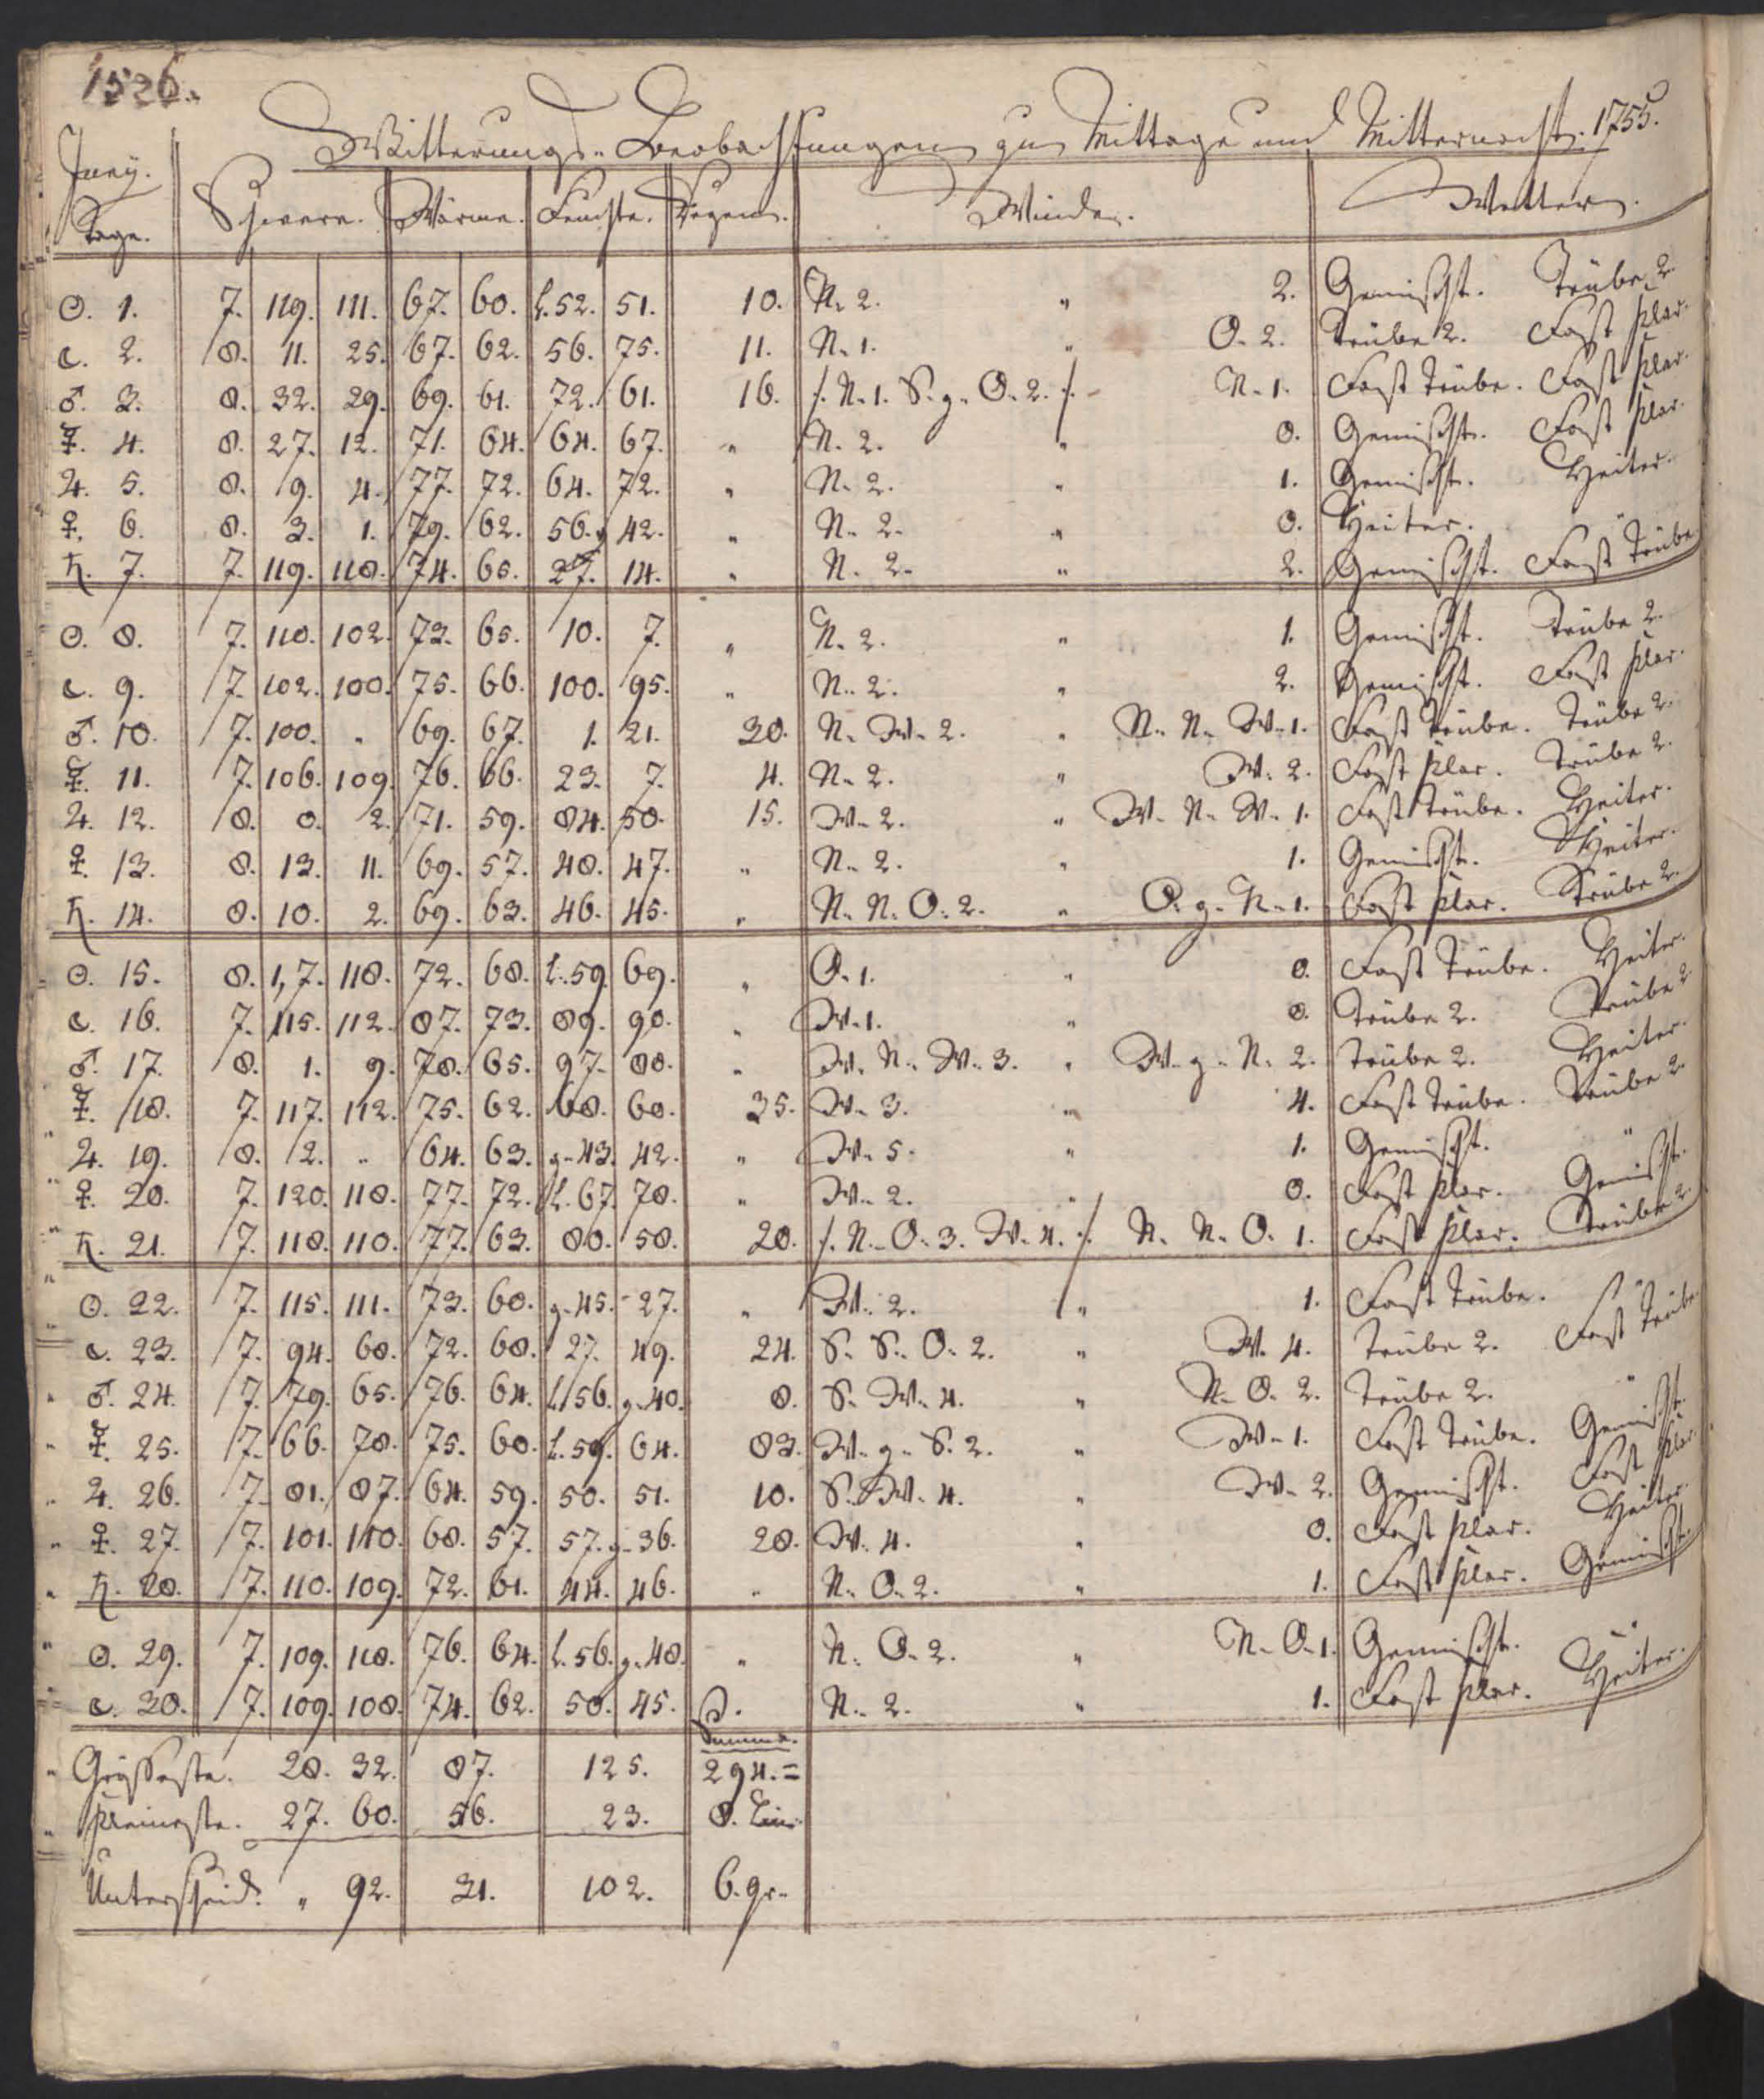 1526.
Witterungs-Beobachtungen zu Mittage und Mitternacht. 1755.
Juny.
Tage. Schwere. Wärme. Feuchte. Regen. Winde. Wetter.
☉. 1. 7. 119. 111. 67. 60. l. 52. 51. 10. N. 2. " 2. Gemischt. Trübe 2.
☾. 2. 8. 11. 25. 67. 62. 56. 75. 11. N. 1. " O. 2. Trübe 2. Fast klar.
♂. 3. 8. 32. 29. 69. 61. 72. 61. 16. /. N. 1. S. g. O. 2. /. N. 1. Fast trübe. Fast klar.
☿. 4. 8. 27. 12. 71. 64. 64. 67. " N. 2. " 0. Gemischt. Fast klar.
♃. 5. 8. 9. 4. 77. 72. 64. 72. " N. 2. " 1. Gemischt. Heiter.
♀. 6. 8. 3. 1. 79. 62. 56. g 42. " N. 2. " 0. Heiter. "
♄. 7. 7. 119. 118. 74. 65. 27. 14. " N. 2. " 2. Gemischt. Fast trübe
☉. 8. 7. 110. 102. 73. 65. 10. 7. " N. 2. " 1. Gemischt. Trübe 2.
☾. 9. 7. 102. 100. 75. 66. 100. 95. " N. 2. " 2. Gemischt. Fast klar.
♂. 10. 7. 100. " 69. 67. 1. 21. 30. N. W. 2. " N. N. W. 1. Fast trübe. Trübe 2.
☿. 11. 7. 106. 109. 76. 66. 23. 7. 4. N. 2. " W. 2. Fast klar. Trübe 2.
♃. 12. 8. 0. 2. 71. 59. 84. 50. 15. W. 2. " W. N. W. 1. Fast trübe. Heiter.
♀. 13. 8. 13. 11. 69. 57. 48. 47. " N. 2. " 1. Gemischt. Heiter.
♄. 14. 8. 10. 2. 69. 63. 46. 45. " N. N. O. 2. " O. g. N. 1. Fast klar. Trübe 2.
☉. 15. 8. 1, 7. 118. 72. 68. l. 59. 69. " O. 1. " 0. Fast trübe. Heiter.
☾. 16. 7. 115. 112. 87. 73. 89. 90. " W. 1. " 0. Trübe 2. Trübe 2.
♂. 17. 8. 1. 9. 78. 65. 97. 80. " W. N. W. 3. " W. g. N. 2. Trübe 2. Heiter.
☿. 18. 7. 117. 112. 75. 62. 68. 60. 35. W. 3. " 4. Fast trübe. Trübe 2.
♃. 19. 8. 2. " 64. 63. g. 43. 42. " W. 5. " 1. Gemischt. "
♀. 20. 7. 120. 118. 77. 72. l. 67. 78. " W. 2. " 0. Fast klar. Gemischt.
♄. 21. 7. 118. 110. 77. 63. 80. 58. 20. /. N. O. 3. W. 4. /. N. N. O. 1. Fast klar. Trübe 2.
☉. 22. 7. 115. 111. 73. 60. g. 45. 27. " W. 2. " 1. Fast trübe. "
☾. 23. 7. 94. 60. 72. 60. 27. 49. 24. S. S. O. 2. " W. 4. Trübe 2. Fast trübe
♂. 24. 7. 79. 65. 76. 64. l. 56. g. 40. 8. S. W. 4. " N. O. 2. Trübe 2. "
☿. 25. 7. 66. 78. 75. 60. l. 59. 64. 83. W. g. S. 2. " W. 1. Fast trübe. Gemischt.
♃. 26. 7. 81. 87. 64. 59. 50. 51. 10. S. W. 4. " W. 2. Gemischt. Fast klar.
♀. 27. 7. 101. 110. 68. 57. 57. g. 36. 28. W. 4. " 0. Fast klar. Heiter.
♄. 28. 7. 110. 109. 72. 61. 44. 46. " N. O. 2. " 1. Fast klar. Gemischt.
☉. 29. 7. 109. 110. 76. 64. l. 56. g. 48. " N. O. 2. " N. O. 1. Gemischt. "
☾. 30. 7. 109. 108. 74. 62. 50. 45. N. 2. " 1. Fast klar. Heiter.
Summa.
Grösseste. 28. 32. 87. 125. 294. =
Kleineste. 27. 60. 56. 23. 8. Lin.
Unterscheid. " 92. 31. 102. 6. gr.